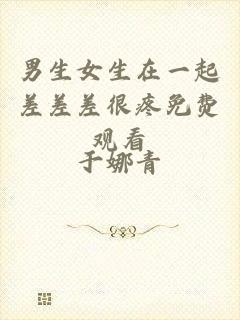 男生女生在一起
差差差很疼免费
观看
于娜青